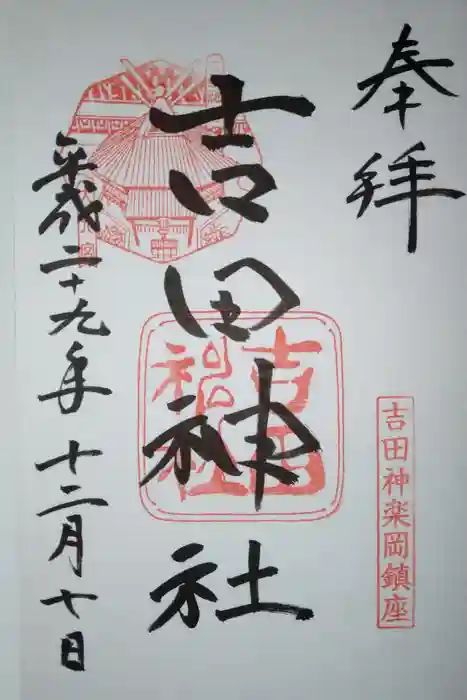 奉拝
吉田神楽岡鎮座
吉田神社
吉田神社
平成二十九年十二月七日